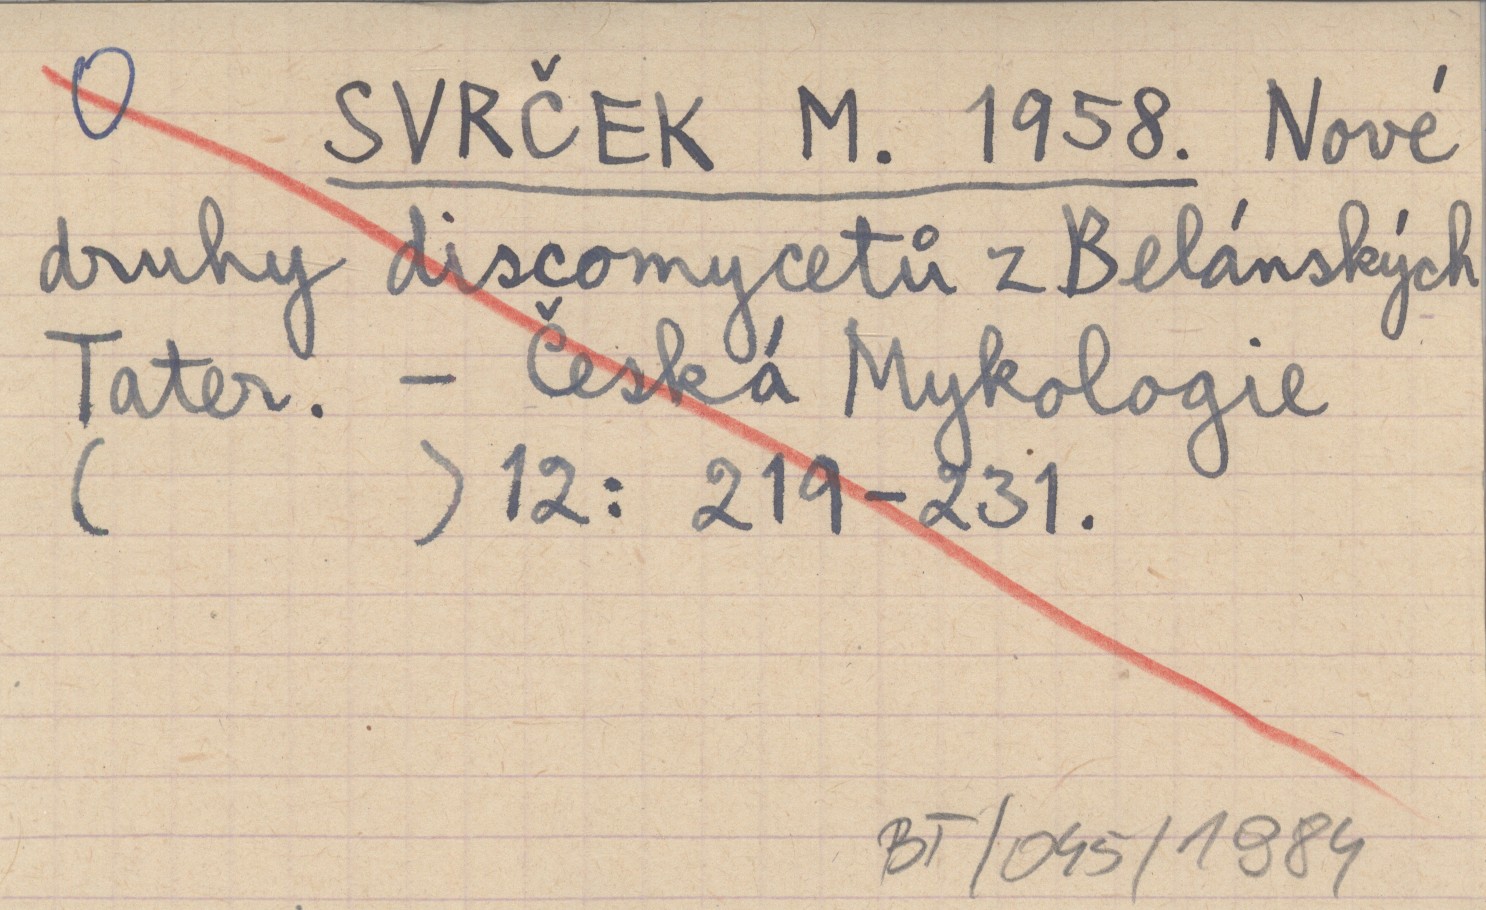 O SVRČEK M. 1958. Nové
druhy discomycetů z Belánských
Tater. - Česká Mykologie
( ) 12: 219-231.
BT/045/1984